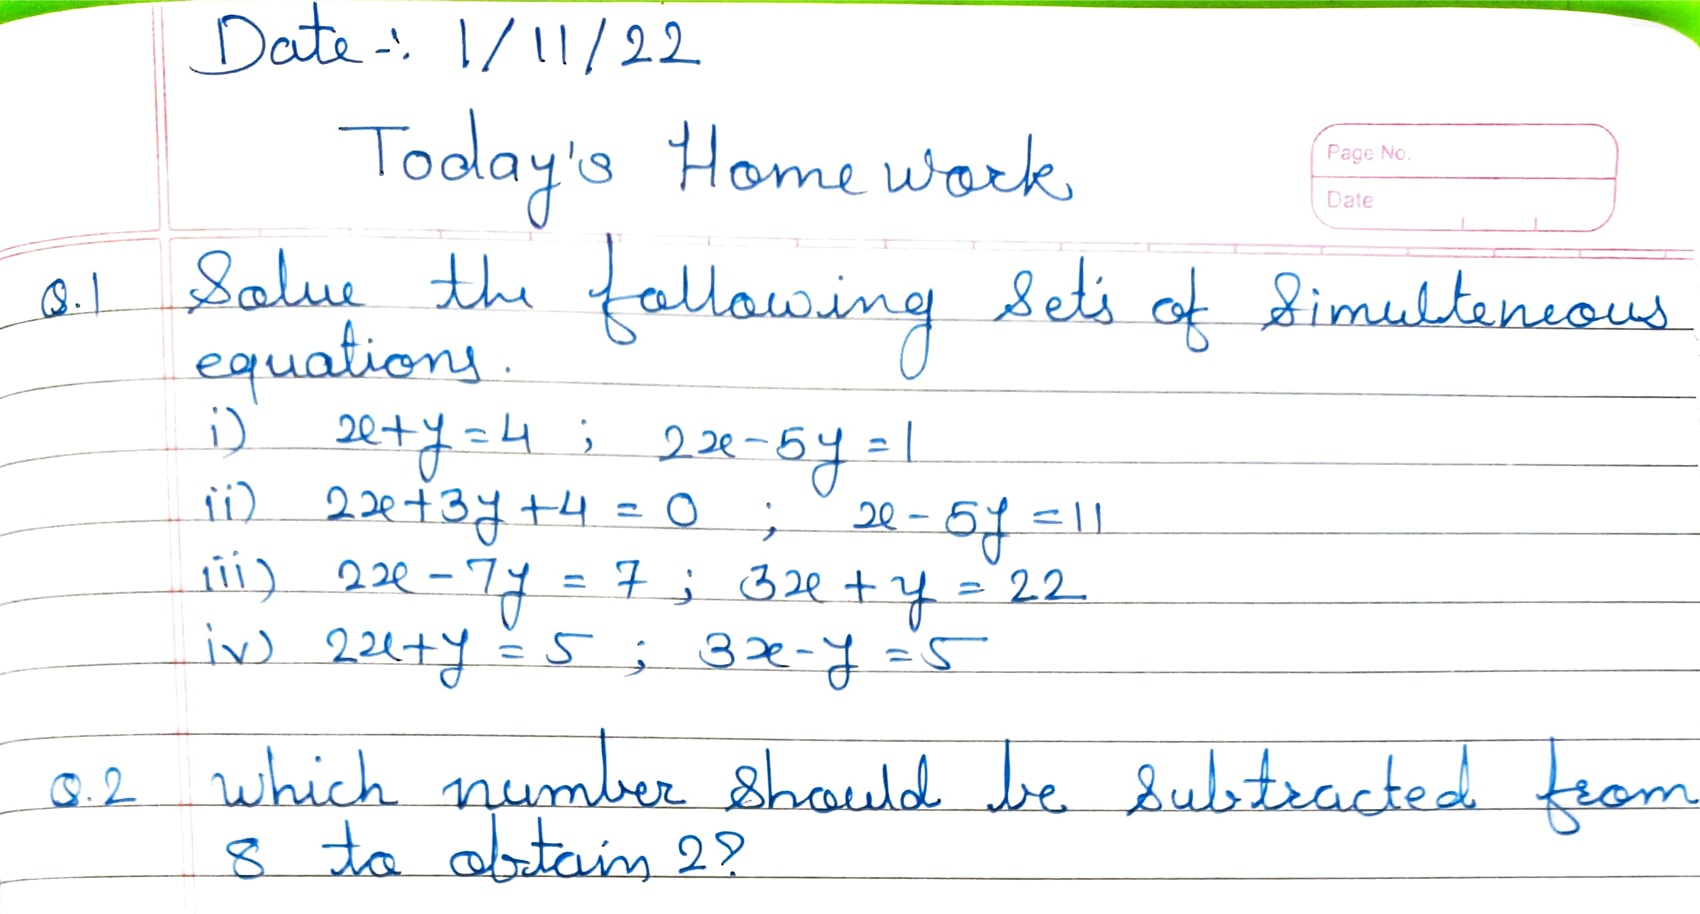 Date -: 1/11/22
Today's Home work
Page No.
Date
Q.1 Solve the following Set's of Simulteneous
equations.
i) x+y=4 ; 2x-5y=1
ii) 2x+3y+4=0 ; x-5y=11
iii) 2x-7y=7 ; 3x+y=22
iv) 2x+y=5 ; 3x-y=5
Q.2 which number should be subtracted from
8 to obtain 2?